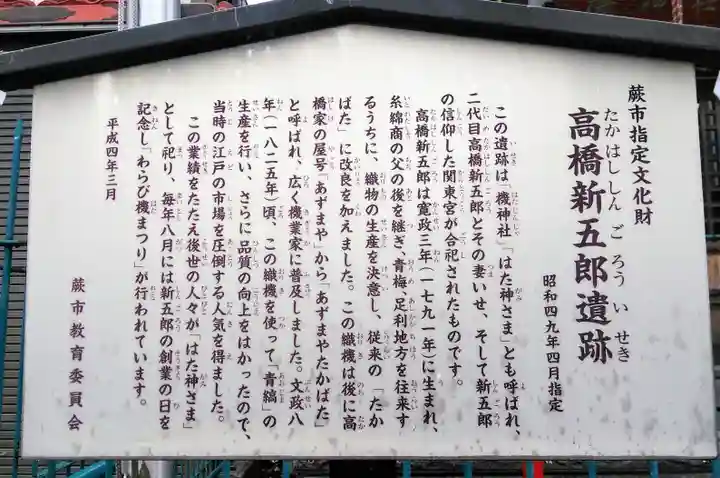 蕨市指定文化財
高橋新五郎遺跡
たかはししんごろういせき
昭和四九年四月指定
この遺跡は「機神社」「はた神さま」とも呼ばれ、
二代目高橋新五郎とその妻いせ、そして新五郎
の信仰した関東宮が合祀されたものです。
高橋新五郎は寛政三年(一七九一年)に生まれ、
糸綿商の父の後を継ぎ、青梅、足利地方を往来す
るうちに、織物の生産を決意し、従来の「たか
ばた」に改良を加えました。この織機は後に高
橋家の屋号「あずまや」から「あずまやたかばた」
と呼ばれ、広く機業家に普及しました。文政八
年(一八二五年)頃、この織機を使って「青縞」の
生産を行い、さらに品質の向上をはかったので、
当時の江戸の市場を圧倒する人気を得ました。
この業績をたたえ後世の人々が「はた神さま」
として祀り、毎年八月には新五郎の創業の日を
記念し「わらび機まつり」が行われています。
平成四年三月
蕨市教育委員会